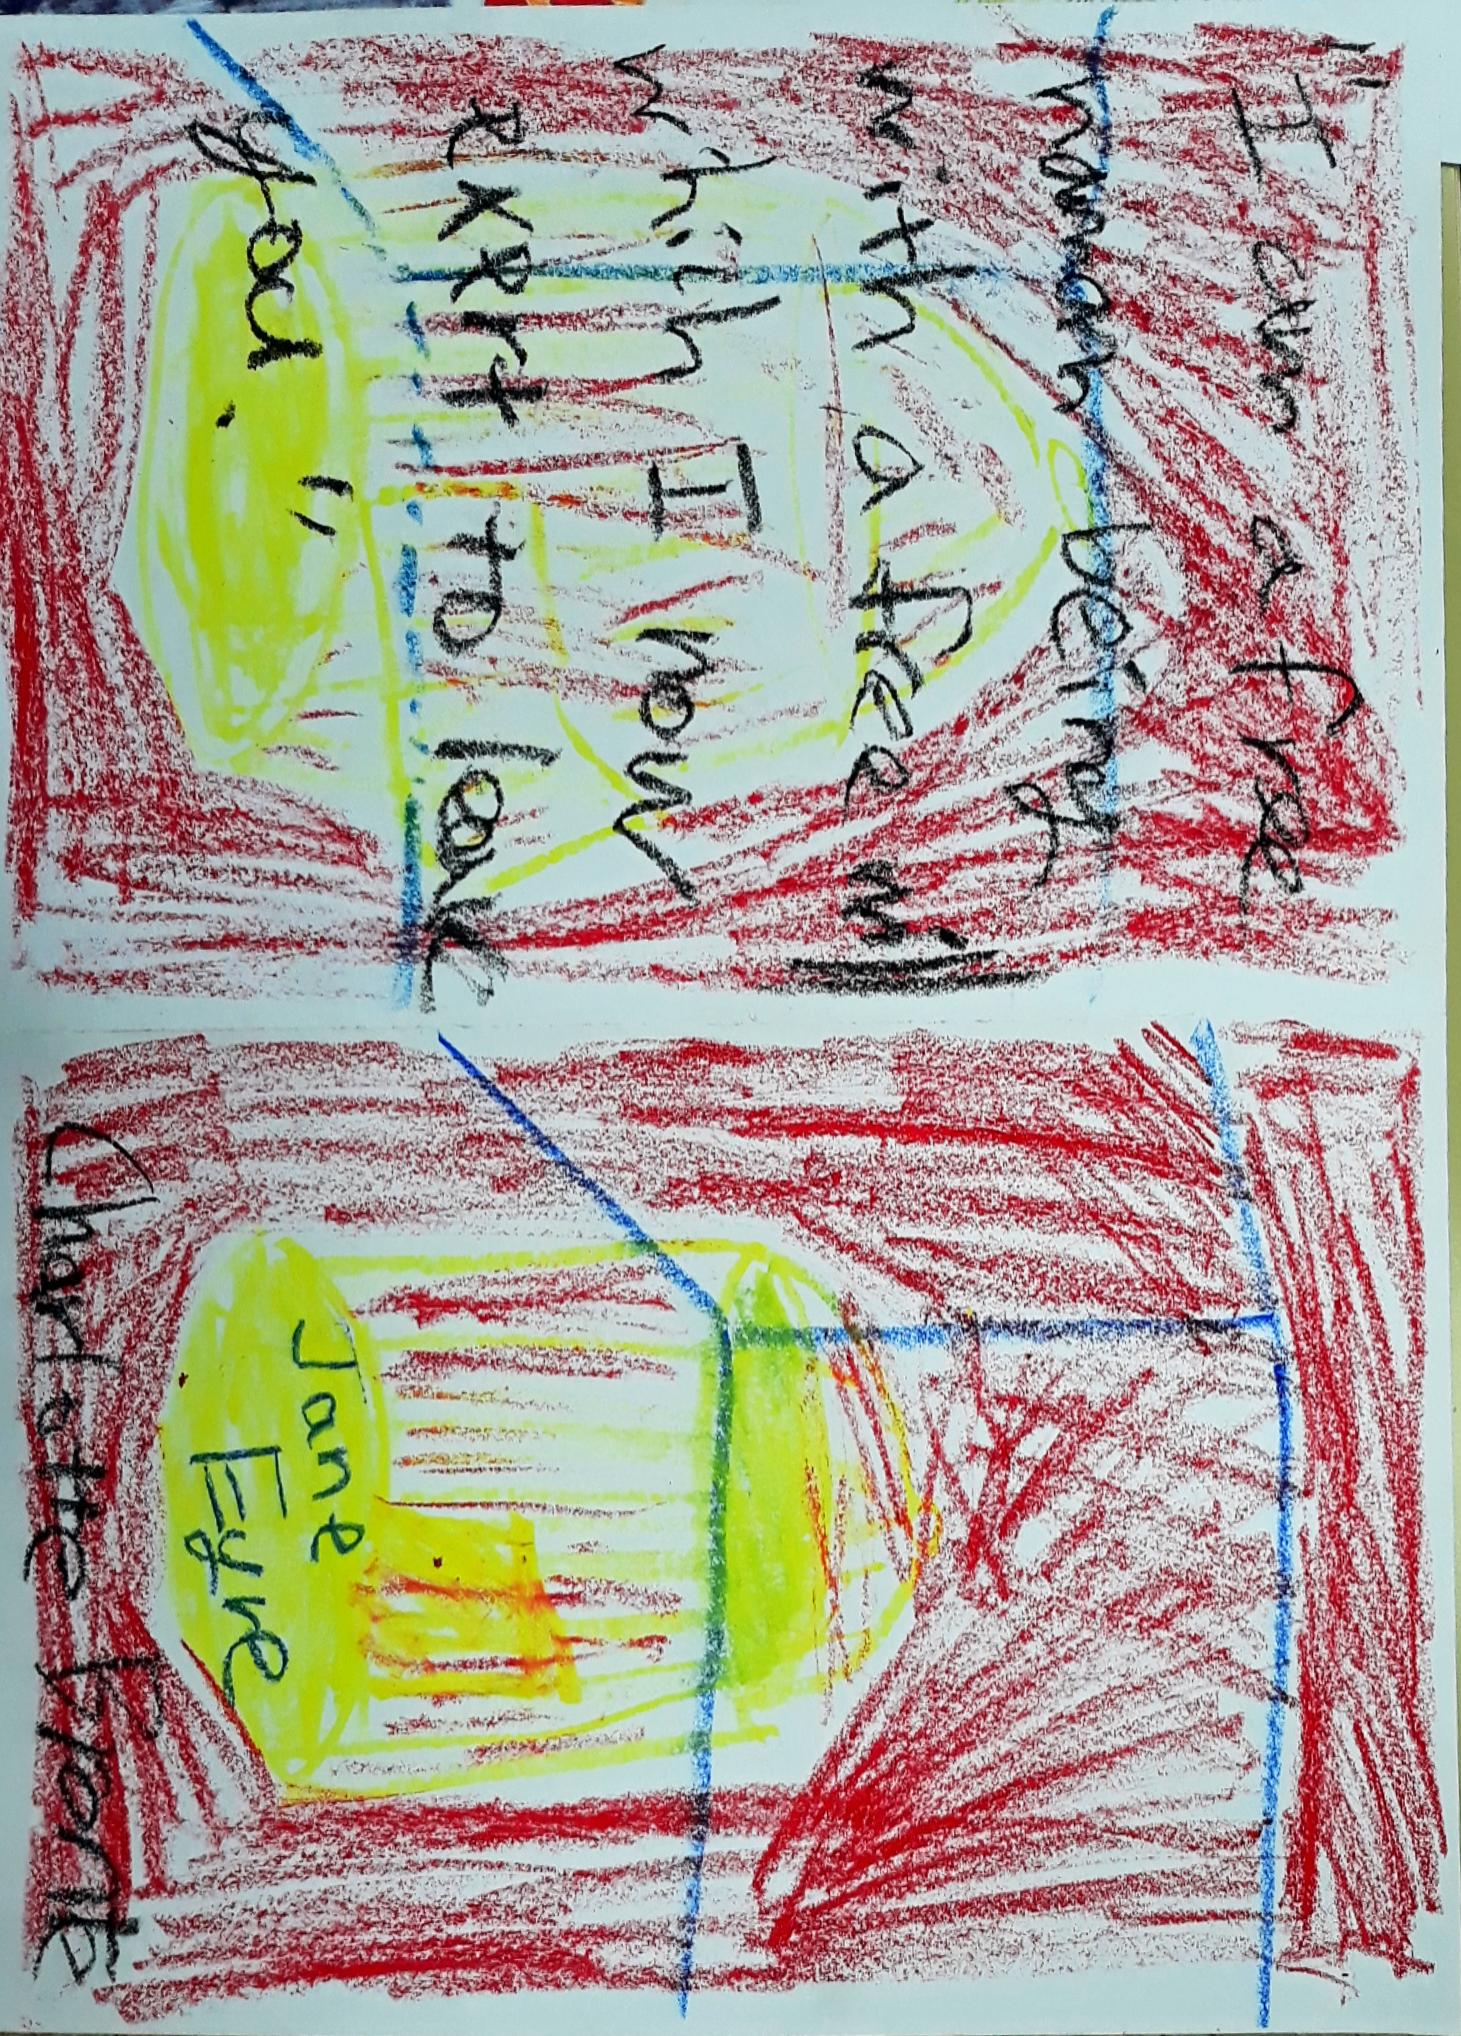 "I am a free
human being
with a free will
which I now
exert to leave
you."
Jane
Eyre
Charlotte Brontë